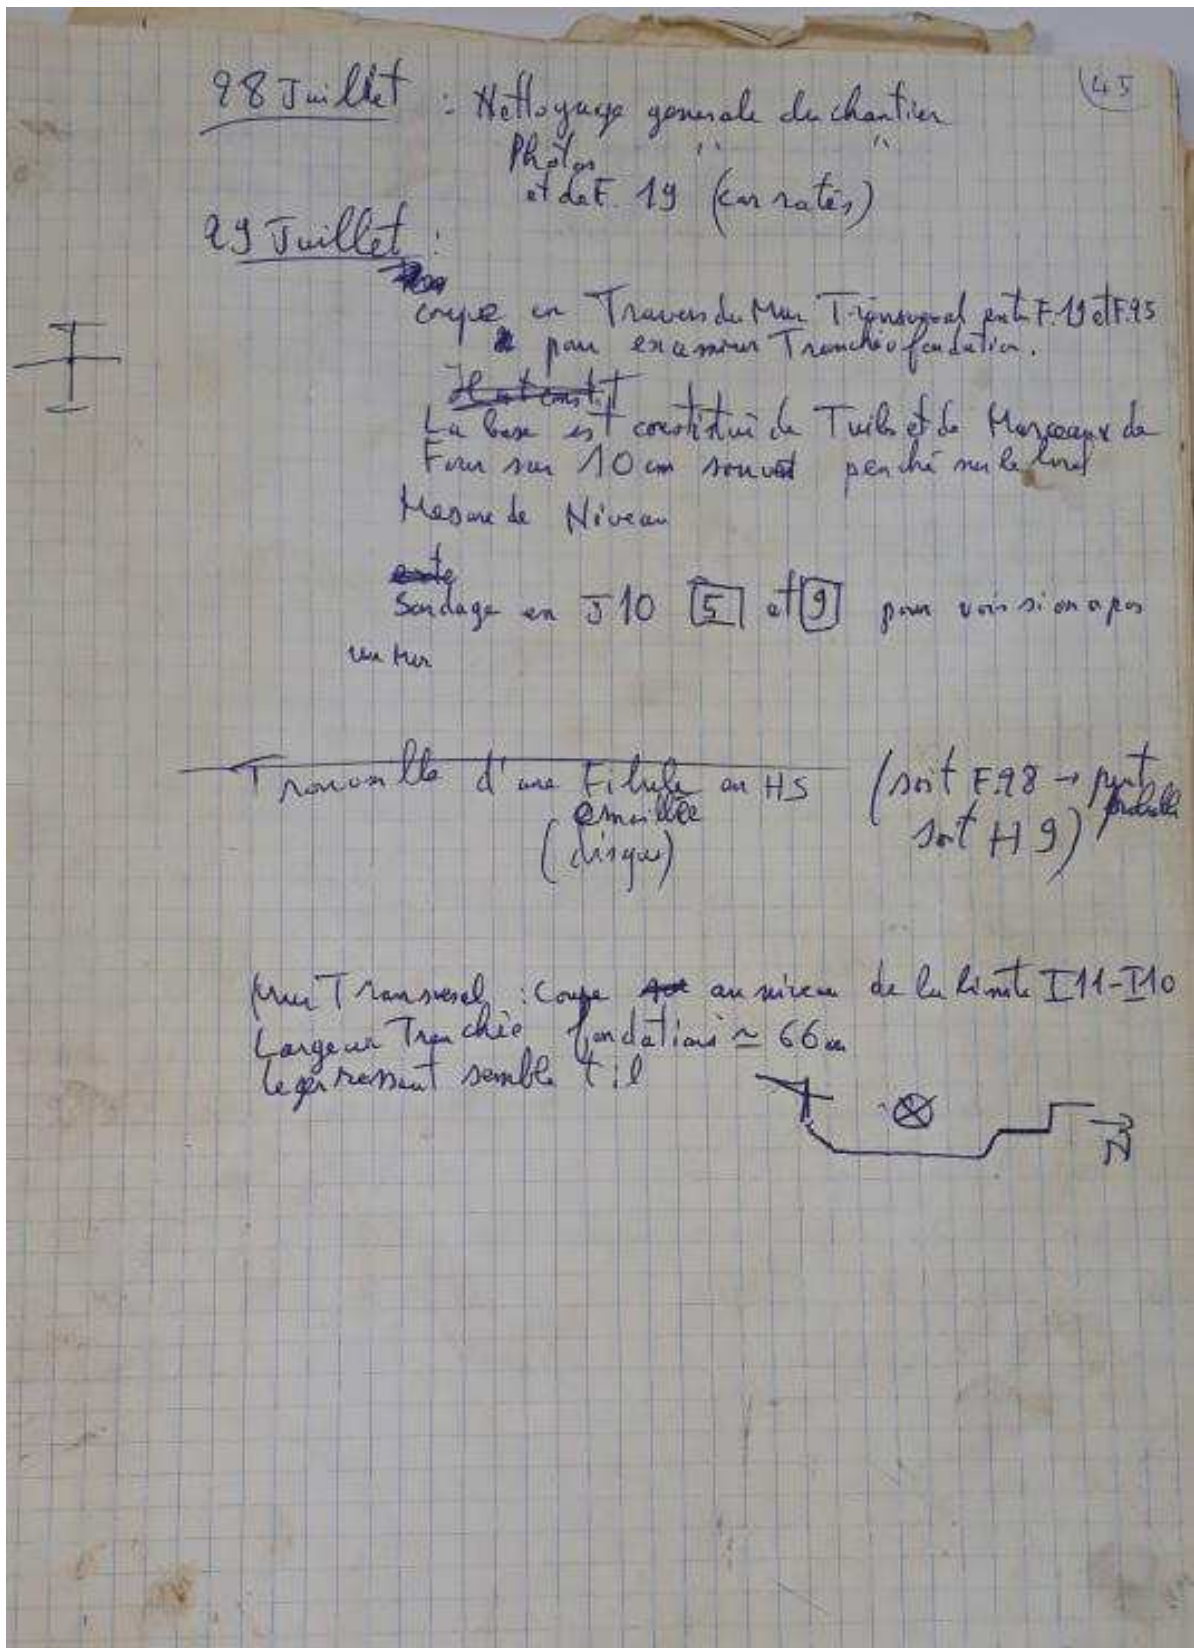 45
28 Juillet : Nettoyage generale du chantier
Photos " "
et de F. 19 (car ratés)
29 Juillet :
coupe en Travers du Mur Transversal entre F.19 et F.25
pour examiner Tranchée fondation.
Il est constit
La base est constitué de Tuiles et de Morceaux de
Four sur 10 cm souvent penché sur le bord
Mesure de Niveau
Sondage en J10 5 et 9 pour voir si on a pas
un Mur
Trouvaille d'une Fibule en H5 (soit F.28 → peut
émaillée probable
(disque) soit H9)
Mur Transversal : Coupe au niveau de la limite I11-I10
Largeur Tranchée fondations ≃ 66 cm
semble t il
N